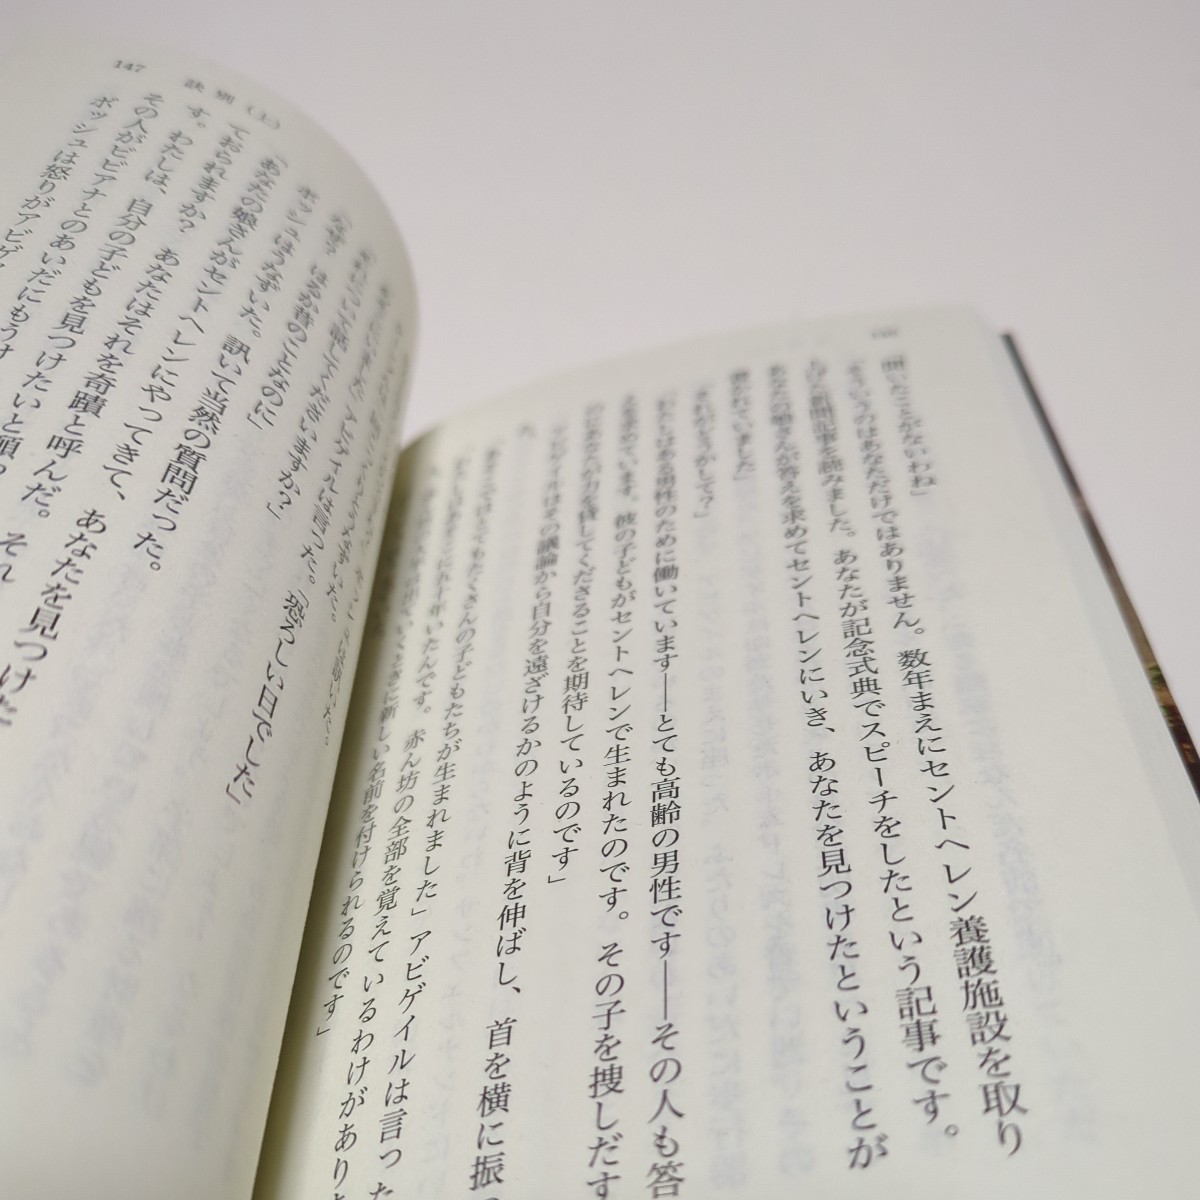 聞いたことがないわね」
「そういうのはあなただけではありません。数年まえにセントヘレン養護施設を取り
上げた新聞記事を読みました。あなたが記念式典でスピーチをしたという記事です。
あなたの娘さんが答えを求めてセントヘレンにいき、あなたを見つけたということが
書かれていました」
「それがどうかして？」
「わたしはある男性のために働いています――とても高齢の男性です――その人も答
えを求めています。彼の子どもがセントヘレンで生まれたのです。その子を捜しだす
のにあなたが力を貸してくださることを期待しているのです」
アビゲイルはその議論から自分を遠ざけるかのように背を伸ばし、首を横に振っ
た。
たくさんの子どもたちが生まれました」アビゲイルは言った
五十年いたんです。赤ん坊の全部を覚えているわけがあり
出ていくときに新しい名前を付けられるのです」
147 訣別（上）
うなずいた。
アビゲイルは言った。「恐ろしい日でした」
について話してくださいますか？」
「なぜ？ はるか昔のことなのに」
ボッシュはうなずいた。訊いて当然の質問だった。
「あなたの娘さんがセントヘレンにやってきて、あなたを見つけた
ておられますか？ あなたはそれを奇蹟と呼んだ。それ
す。わたしは、自分の子どもを見つけたいと願
その人がビビアナとのあいだにもうけ
ボッシュは怒りがアビゲ